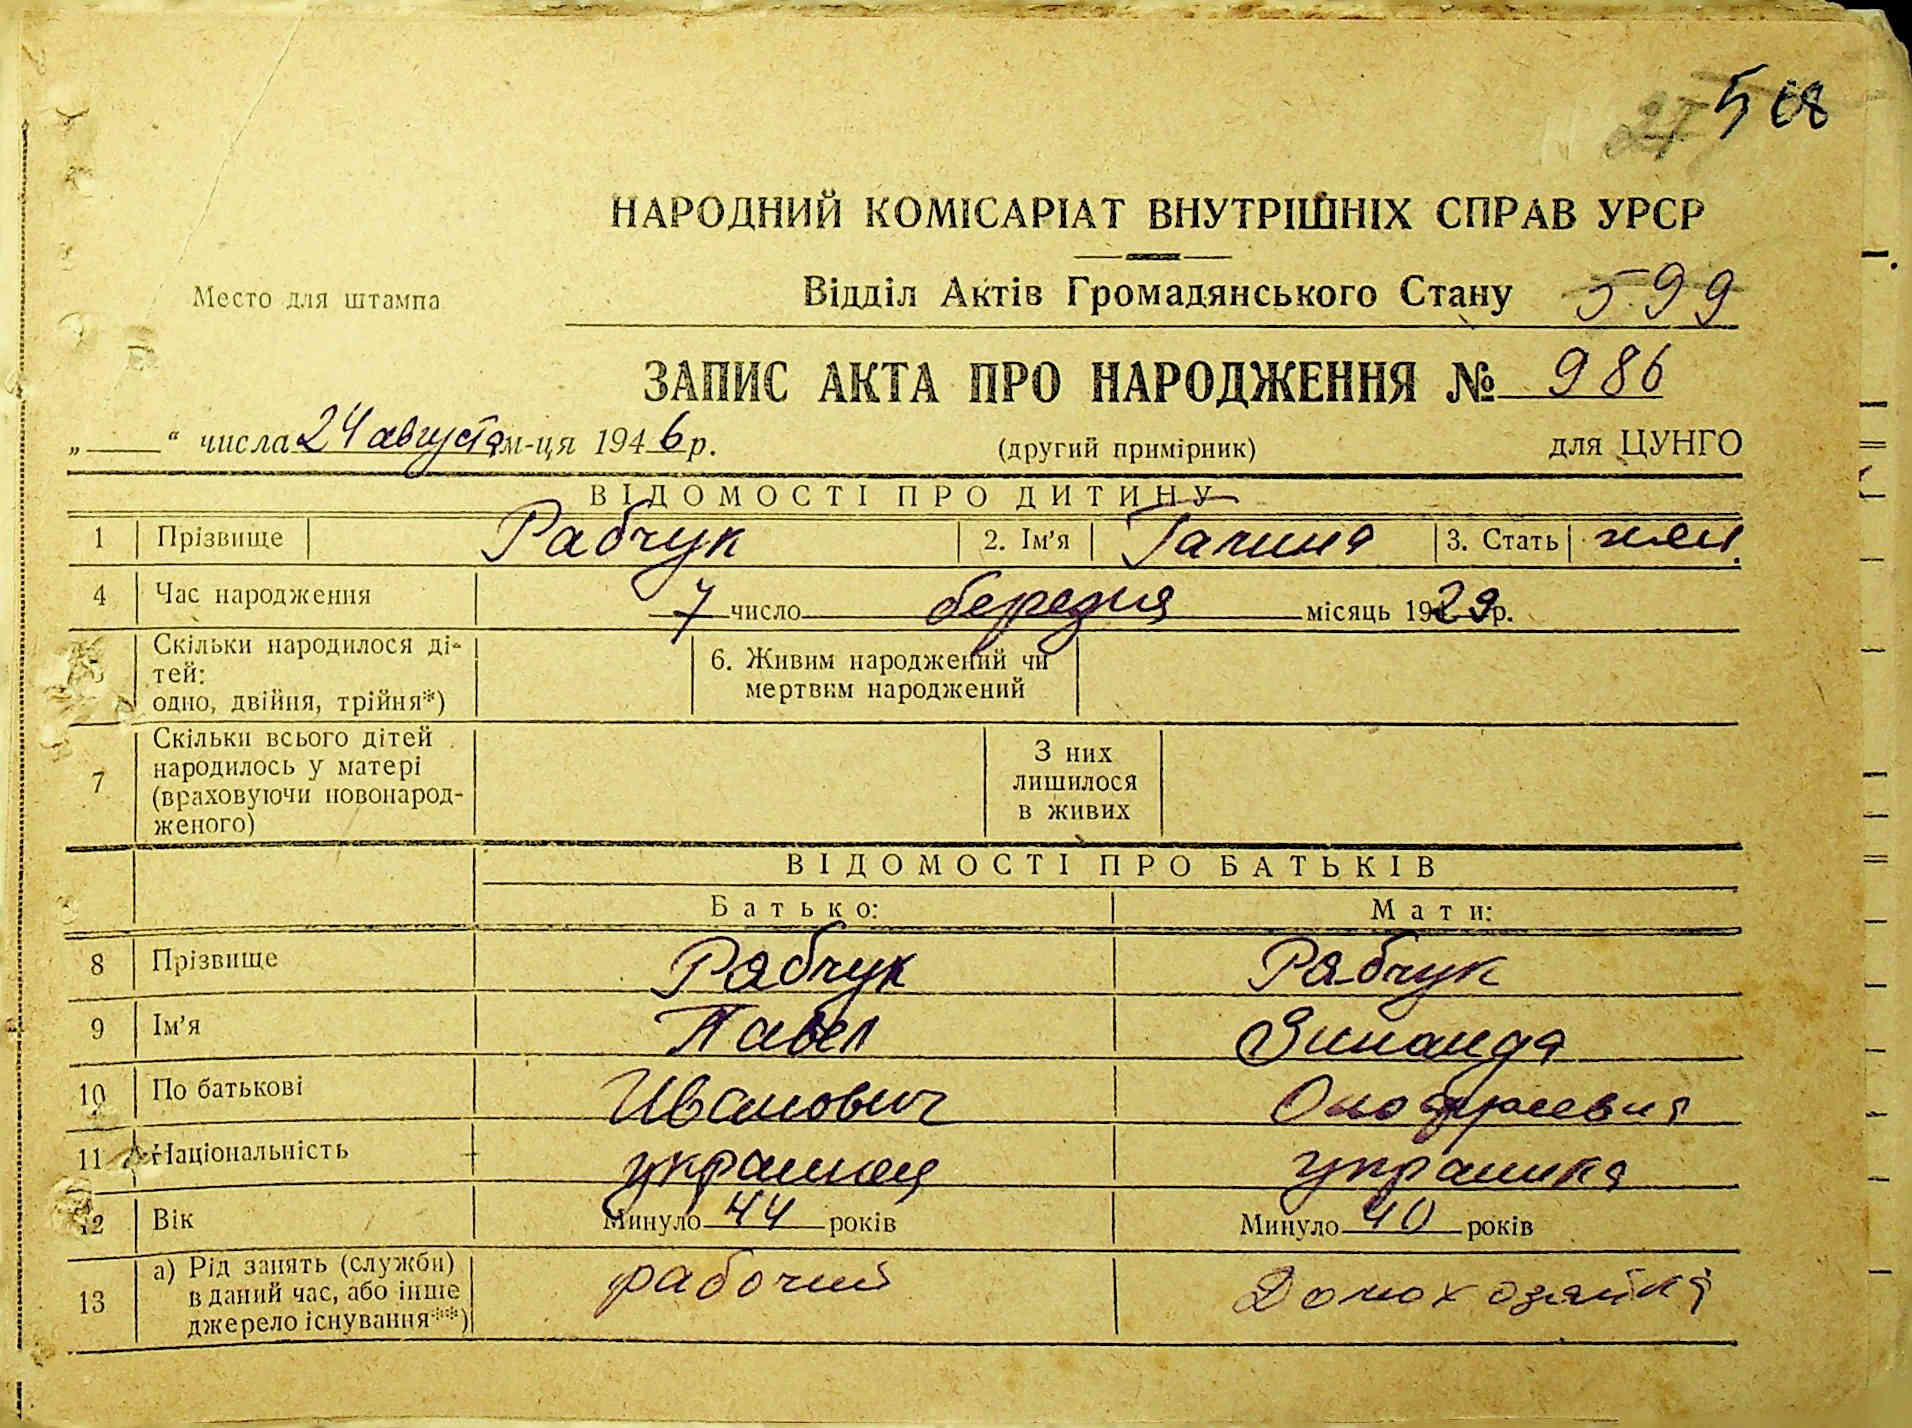 508
НАРОДНИЙ КОМІСАРІАТ ВНУТРІШНІХ СПРАВ УРСР
Место для штампа
Відділ Актів Громадянського Стану 599
ЗАПИС АКТА ПРО НАРОДЖЕННЯ № 986
„ “ числа 24 августа м-ця 1946 р. (другий примірник) для ЦУНГО
ВІДОМОСТІ ПРО ДИТИНУ
1 Прізвище Рабчук 2. Ім'я Галина 3. Стать жен.
4 Час народження 7 число березня місяць 1929 р.
5 Скільки народилося ді-
тей:
одно, двійня, трійня*)
6. Живим народжений чи
мертвим народжений
7 Скільки всього дітей
народилось у матері
(враховуючи новонарод-
женого)
З них
лишилося
в живих
ВІДОМОСТІ ПРО БАТЬКІВ
Батько: Мати:
8 Прізвище Рабчук Рабчук
9 Ім'я Павел Зинаида
10 По батькові Иванович Онофриевна
11 Національність украинец украинка
12 Вік Минуло 44 років Минуло 40 років
13 а) Рід занять (служби)
в даний час, або інше
джерело існування**)
рабочий Домохозяйка